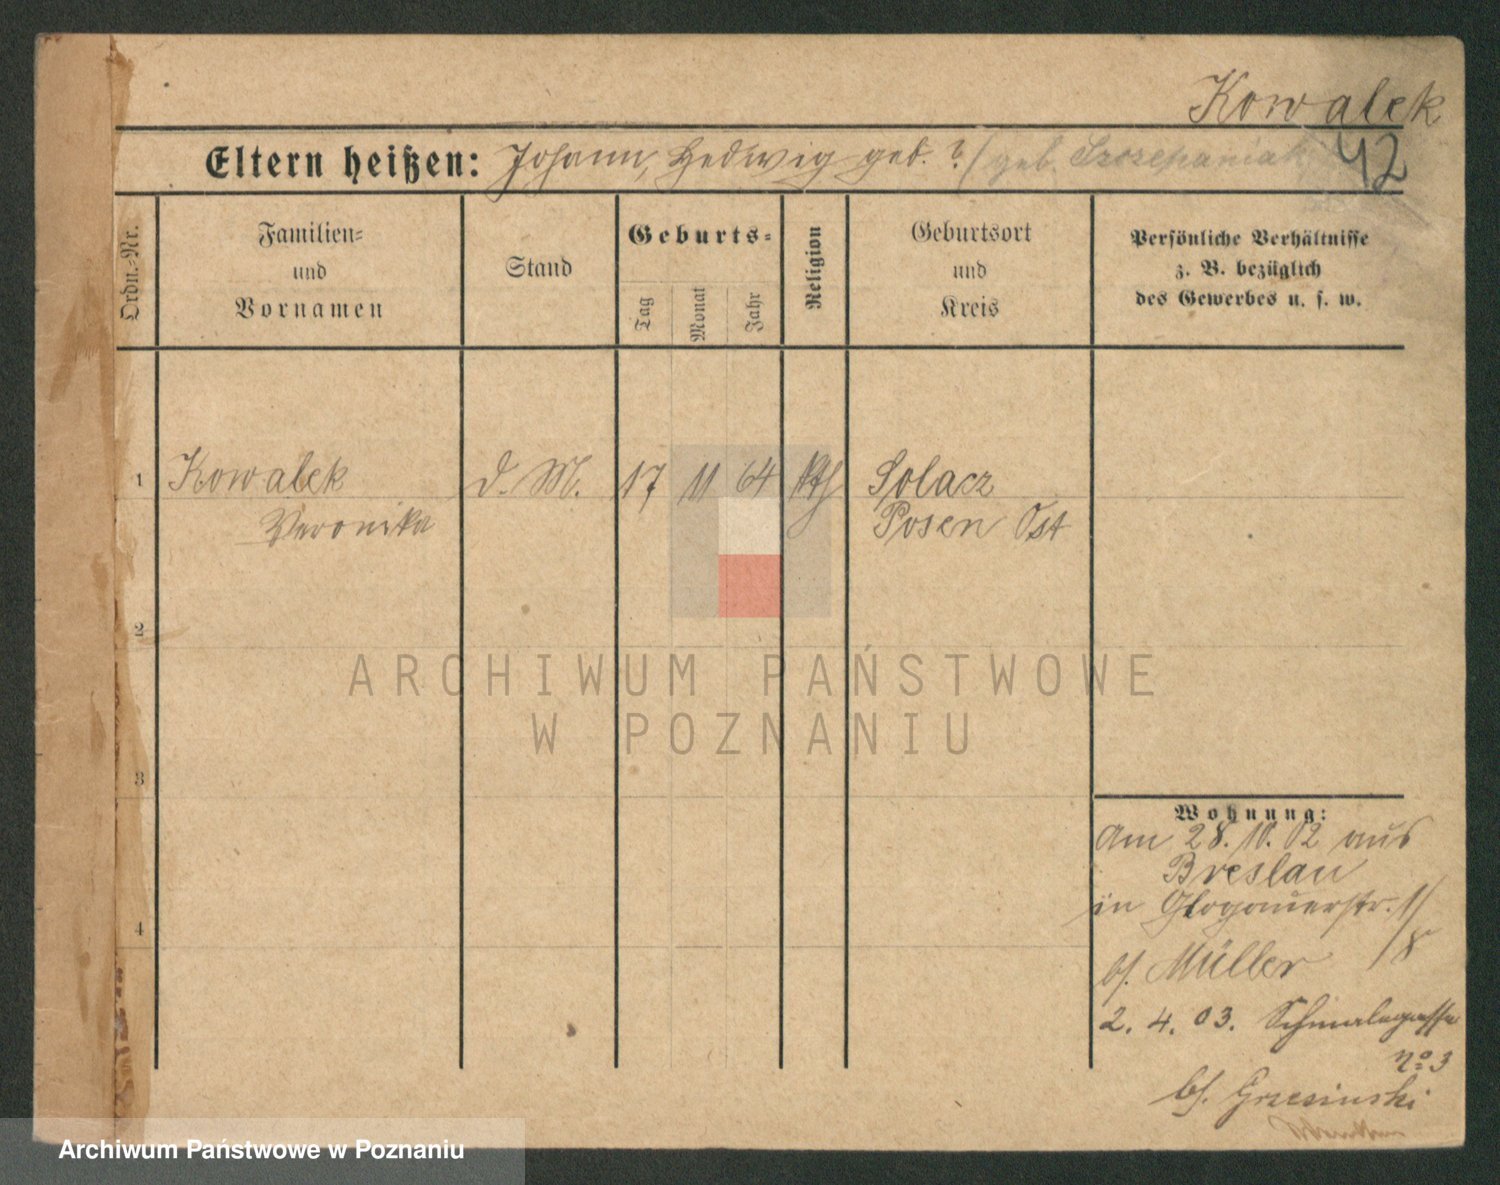 Kowalek
42
Eltern heißen: Johann, Hedwig geb. ? (geb. Szczepaniak
Ordn.-Nr.
Familien-
und
Vornamen
Stand
Geburts-
Tag
Monat
Jahr
Religion
Geburtsort
und
Kreis
Persönliche Verhältnisse
z. B. bezüglich
des Gewerbes u. s. w.
1 Kowalek d. M. 17 11 64 kth Solacz
Veronika Posen Ost
2
ARCHIWUM PAŃSTWOWE
W POZNANIU
3
4
Wohnung:
Am 28.10.02 aus
Breslau
in Glogauerstr. 1/
18
bf. Müller
2. 4. 03. Schmalegasse
No 3
bf. Grzesinski
Archiwum Państwowe w Poznaniu